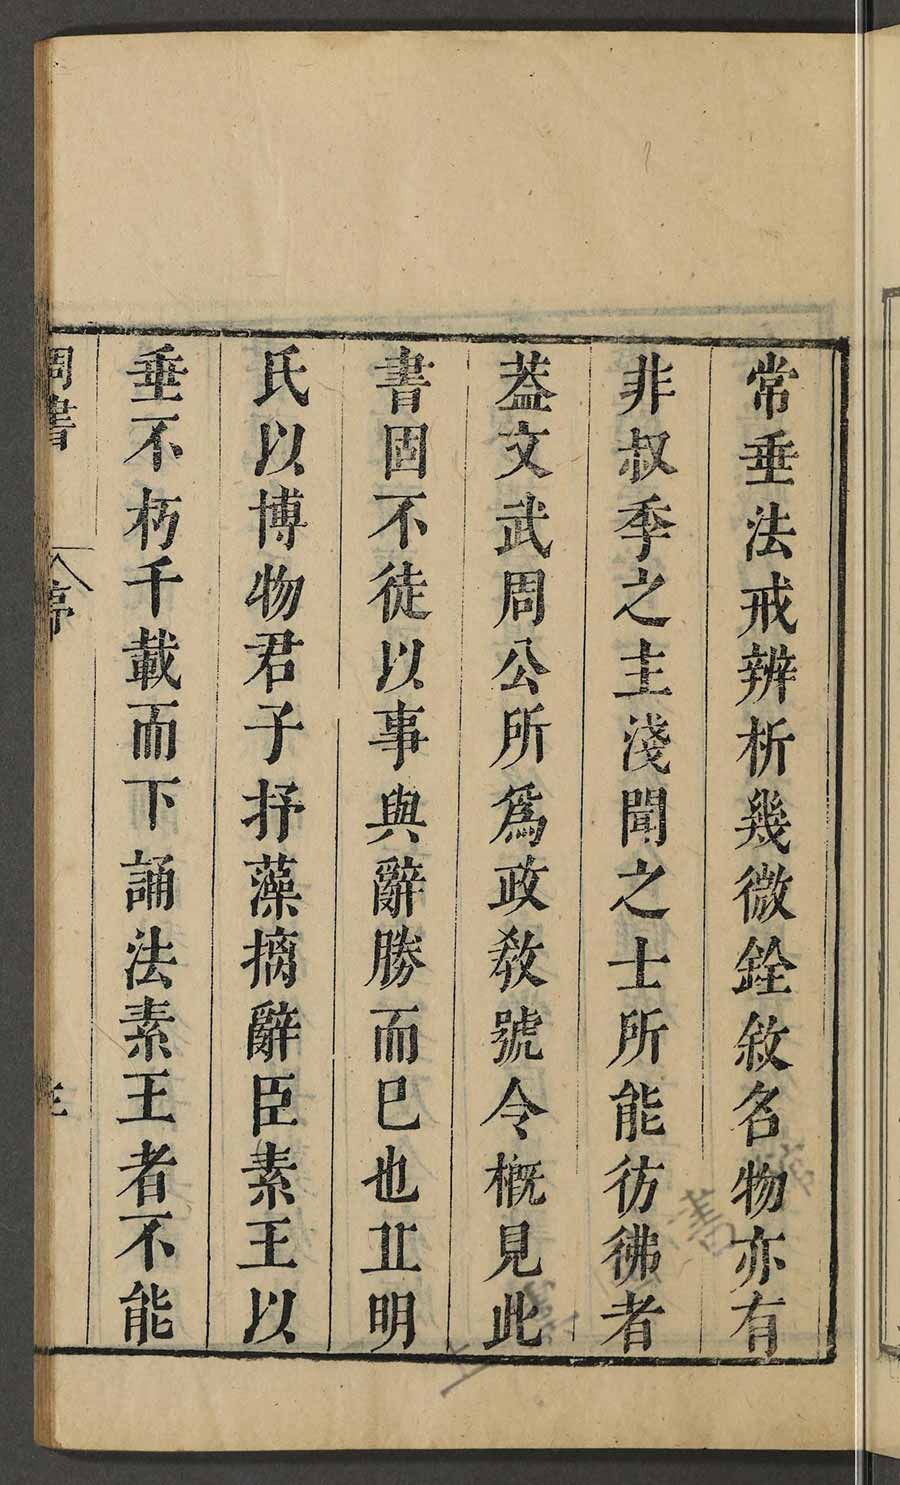 常垂法戒辨析幾微銓敘名物亦有
非叔季之主淺聞之士所能彷彿者
蓋文武周公所爲政教號令概見此
書固不徒以事與辭勝而巳也丠明
氏以博物君子抒藻摛辭臣素王以
垂不朽千載而下誦法素王者不能
周書
序